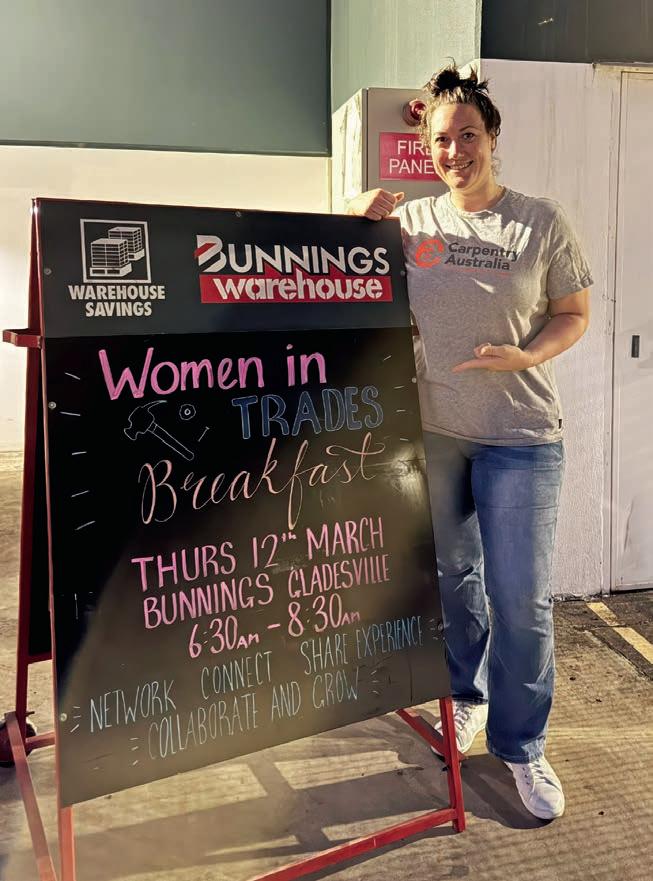 FIRE
PANE
WAREHOUSE
SAVINGS
BUNNINGS
warehouse
Carpentry
Australia
Women in
TRADES
Breakfast
THURS 12th MARCH
BUNNINGS GLADESVILLE
6:30AM - 8:30AM
NETWORK CONNECT SHARE EXPERIENCE
COLLABORATE AND GROW